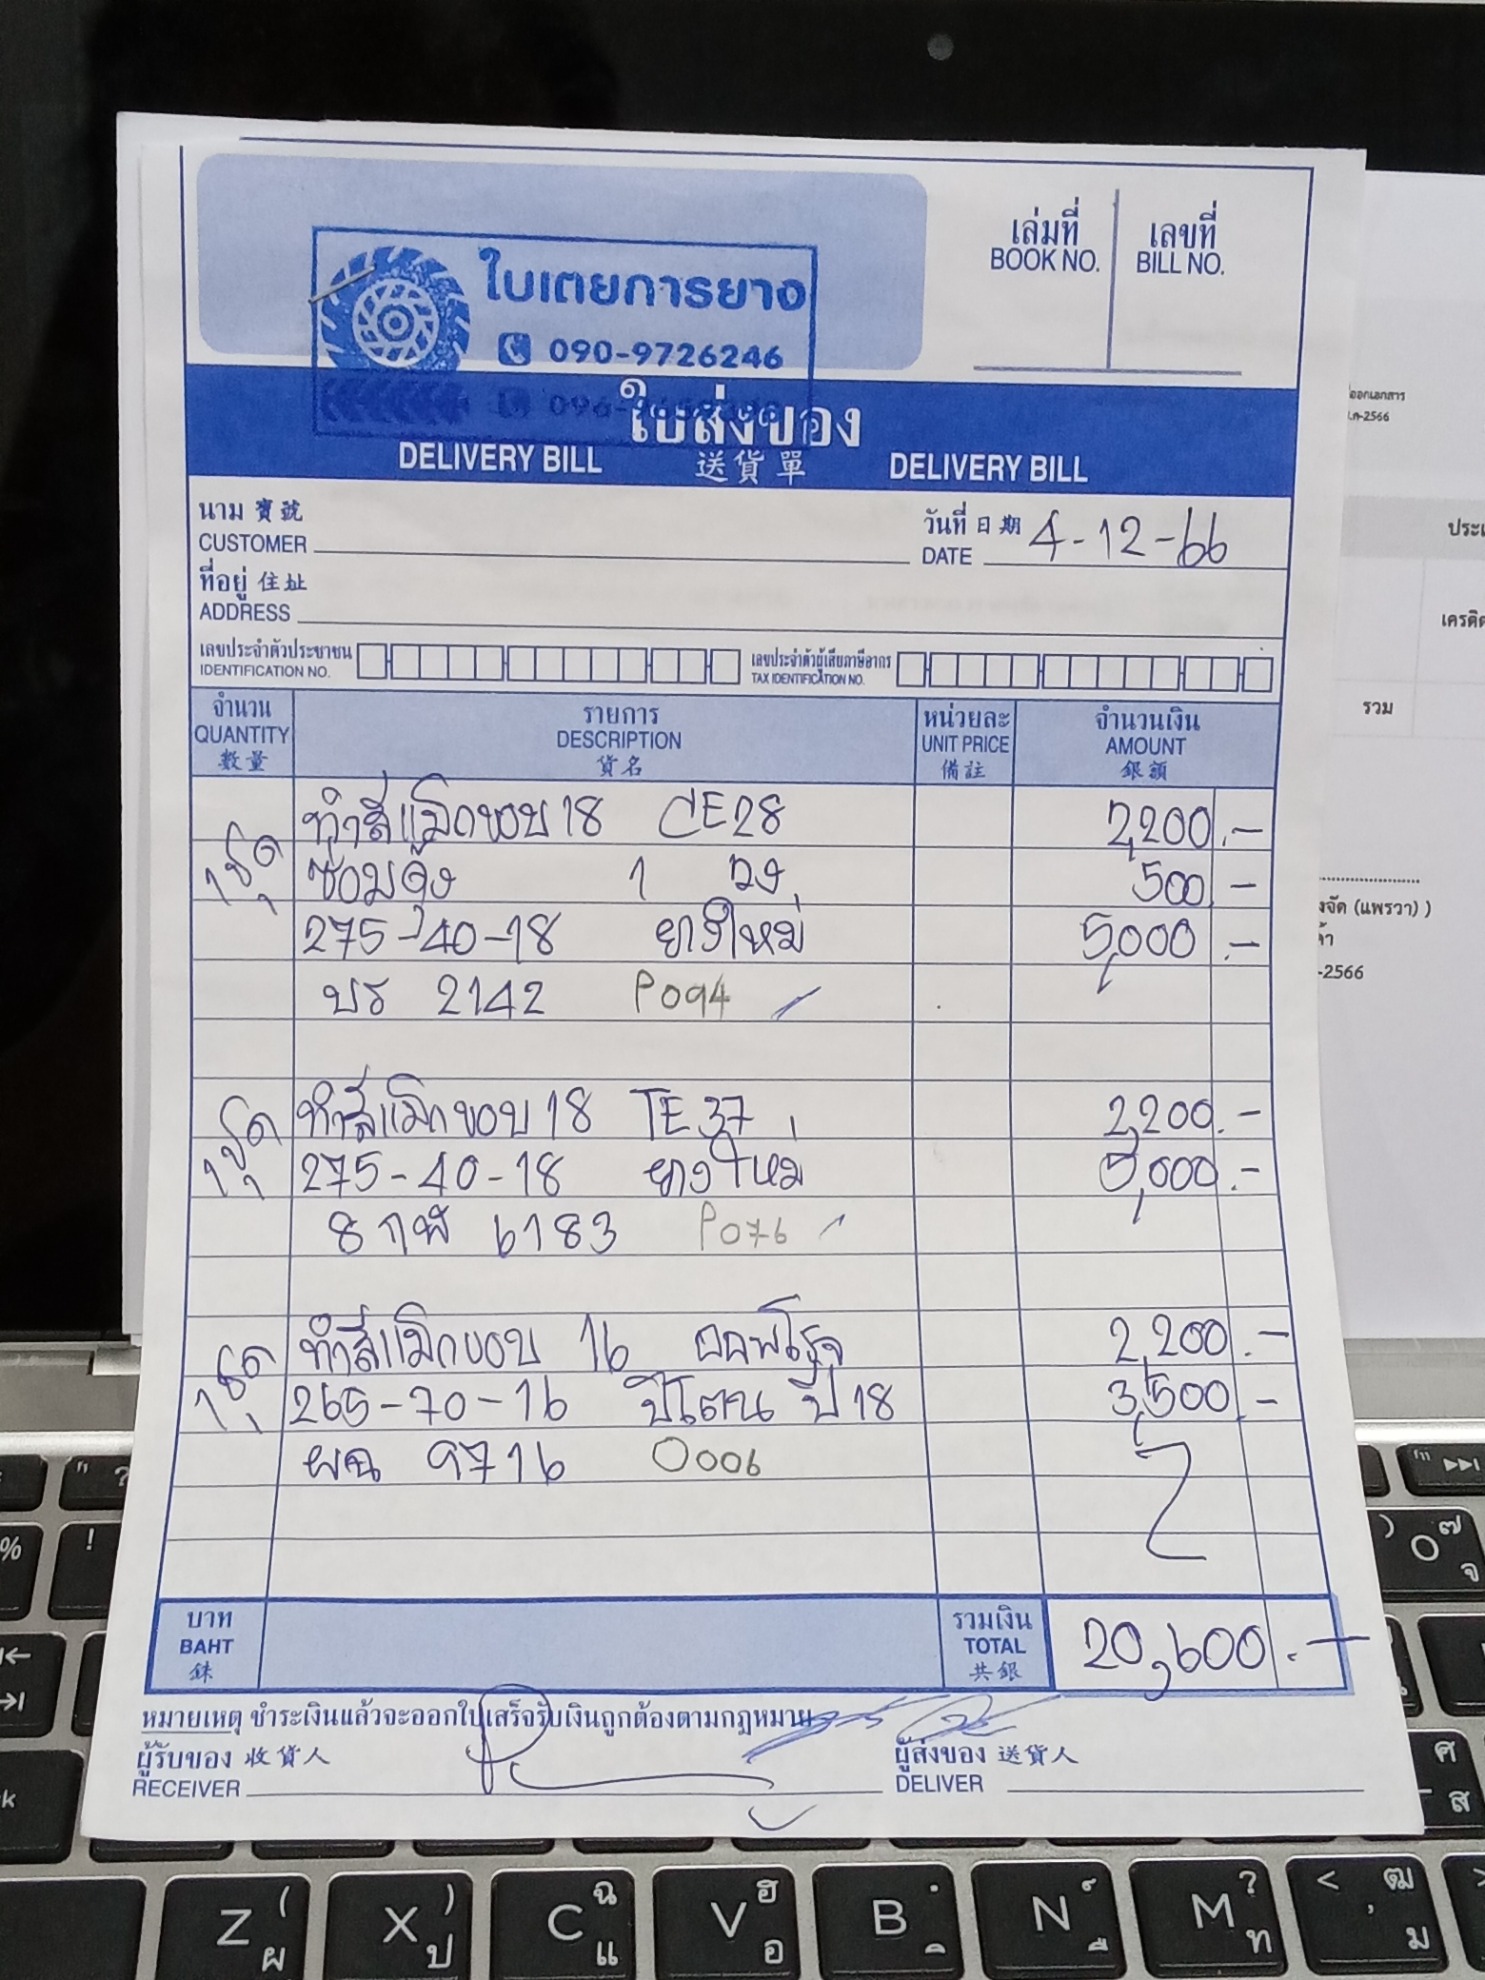 ใบเตยการยาง
090-9726246
เล่มที่
BOOK NO.
เลขที่
BILL NO.
ใบส่งของ
DELIVERY BILL 送貨單 DELIVERY BILL
นาม 寶號
CUSTOMER
วันที่ 日期 4-12-66
DATE
ที่อยู่ 住址
ADDRESS
เลขประจำตัวประชาชน
IDENTIFICATION NO.
เลขประจำตัวผู้เสียภาษีอากร
TAX IDENTIFICATION NO.
จำนวน
QUANTITY
數量
รายการ
DESCRIPTION
貨名
หน่วยละ
UNIT PRICE
備註
จำนวนเงิน
AMOUNT
銀額
ทำสีแม็กขอบ 18 CE28 2,200.-
1 ชุด ซ่อมดุ้ง 1 วง 500 -
275-40-18 ยางใหม่ 5,000.-
บร 2142 P094
1 ชุด ทำสีแม็กขอบ 18 TE37 2,200.-
275-40-18 ยางใหม่ 5,000.-
8กฬ 6183 P076
1 ชุด ทำสีแม็กขอบ 16 ออฟโรจ 2,200.-
265-70-16 ปีโตน ปี 18 3,500.-
ผฉ 9716 0006
บาท
BAHT
銖
รวมเงิน
TOTAL
共銀
20,600.-
หมายเหตุ ชำระเงินแล้วจะออกใบเสร็จรับเงินถูกต้องตามกฎหมาย
ผู้รับของ 收貨人
RECEIVER
ผู้ส่งของ 送貨人
DELIVER
รวม
(แพรวา) )
-2566
Z ( ผ
X ) ป
C ฉ แ
V ฮ อ
B
N
M ? ท
< ฒ , ม
ศ ส